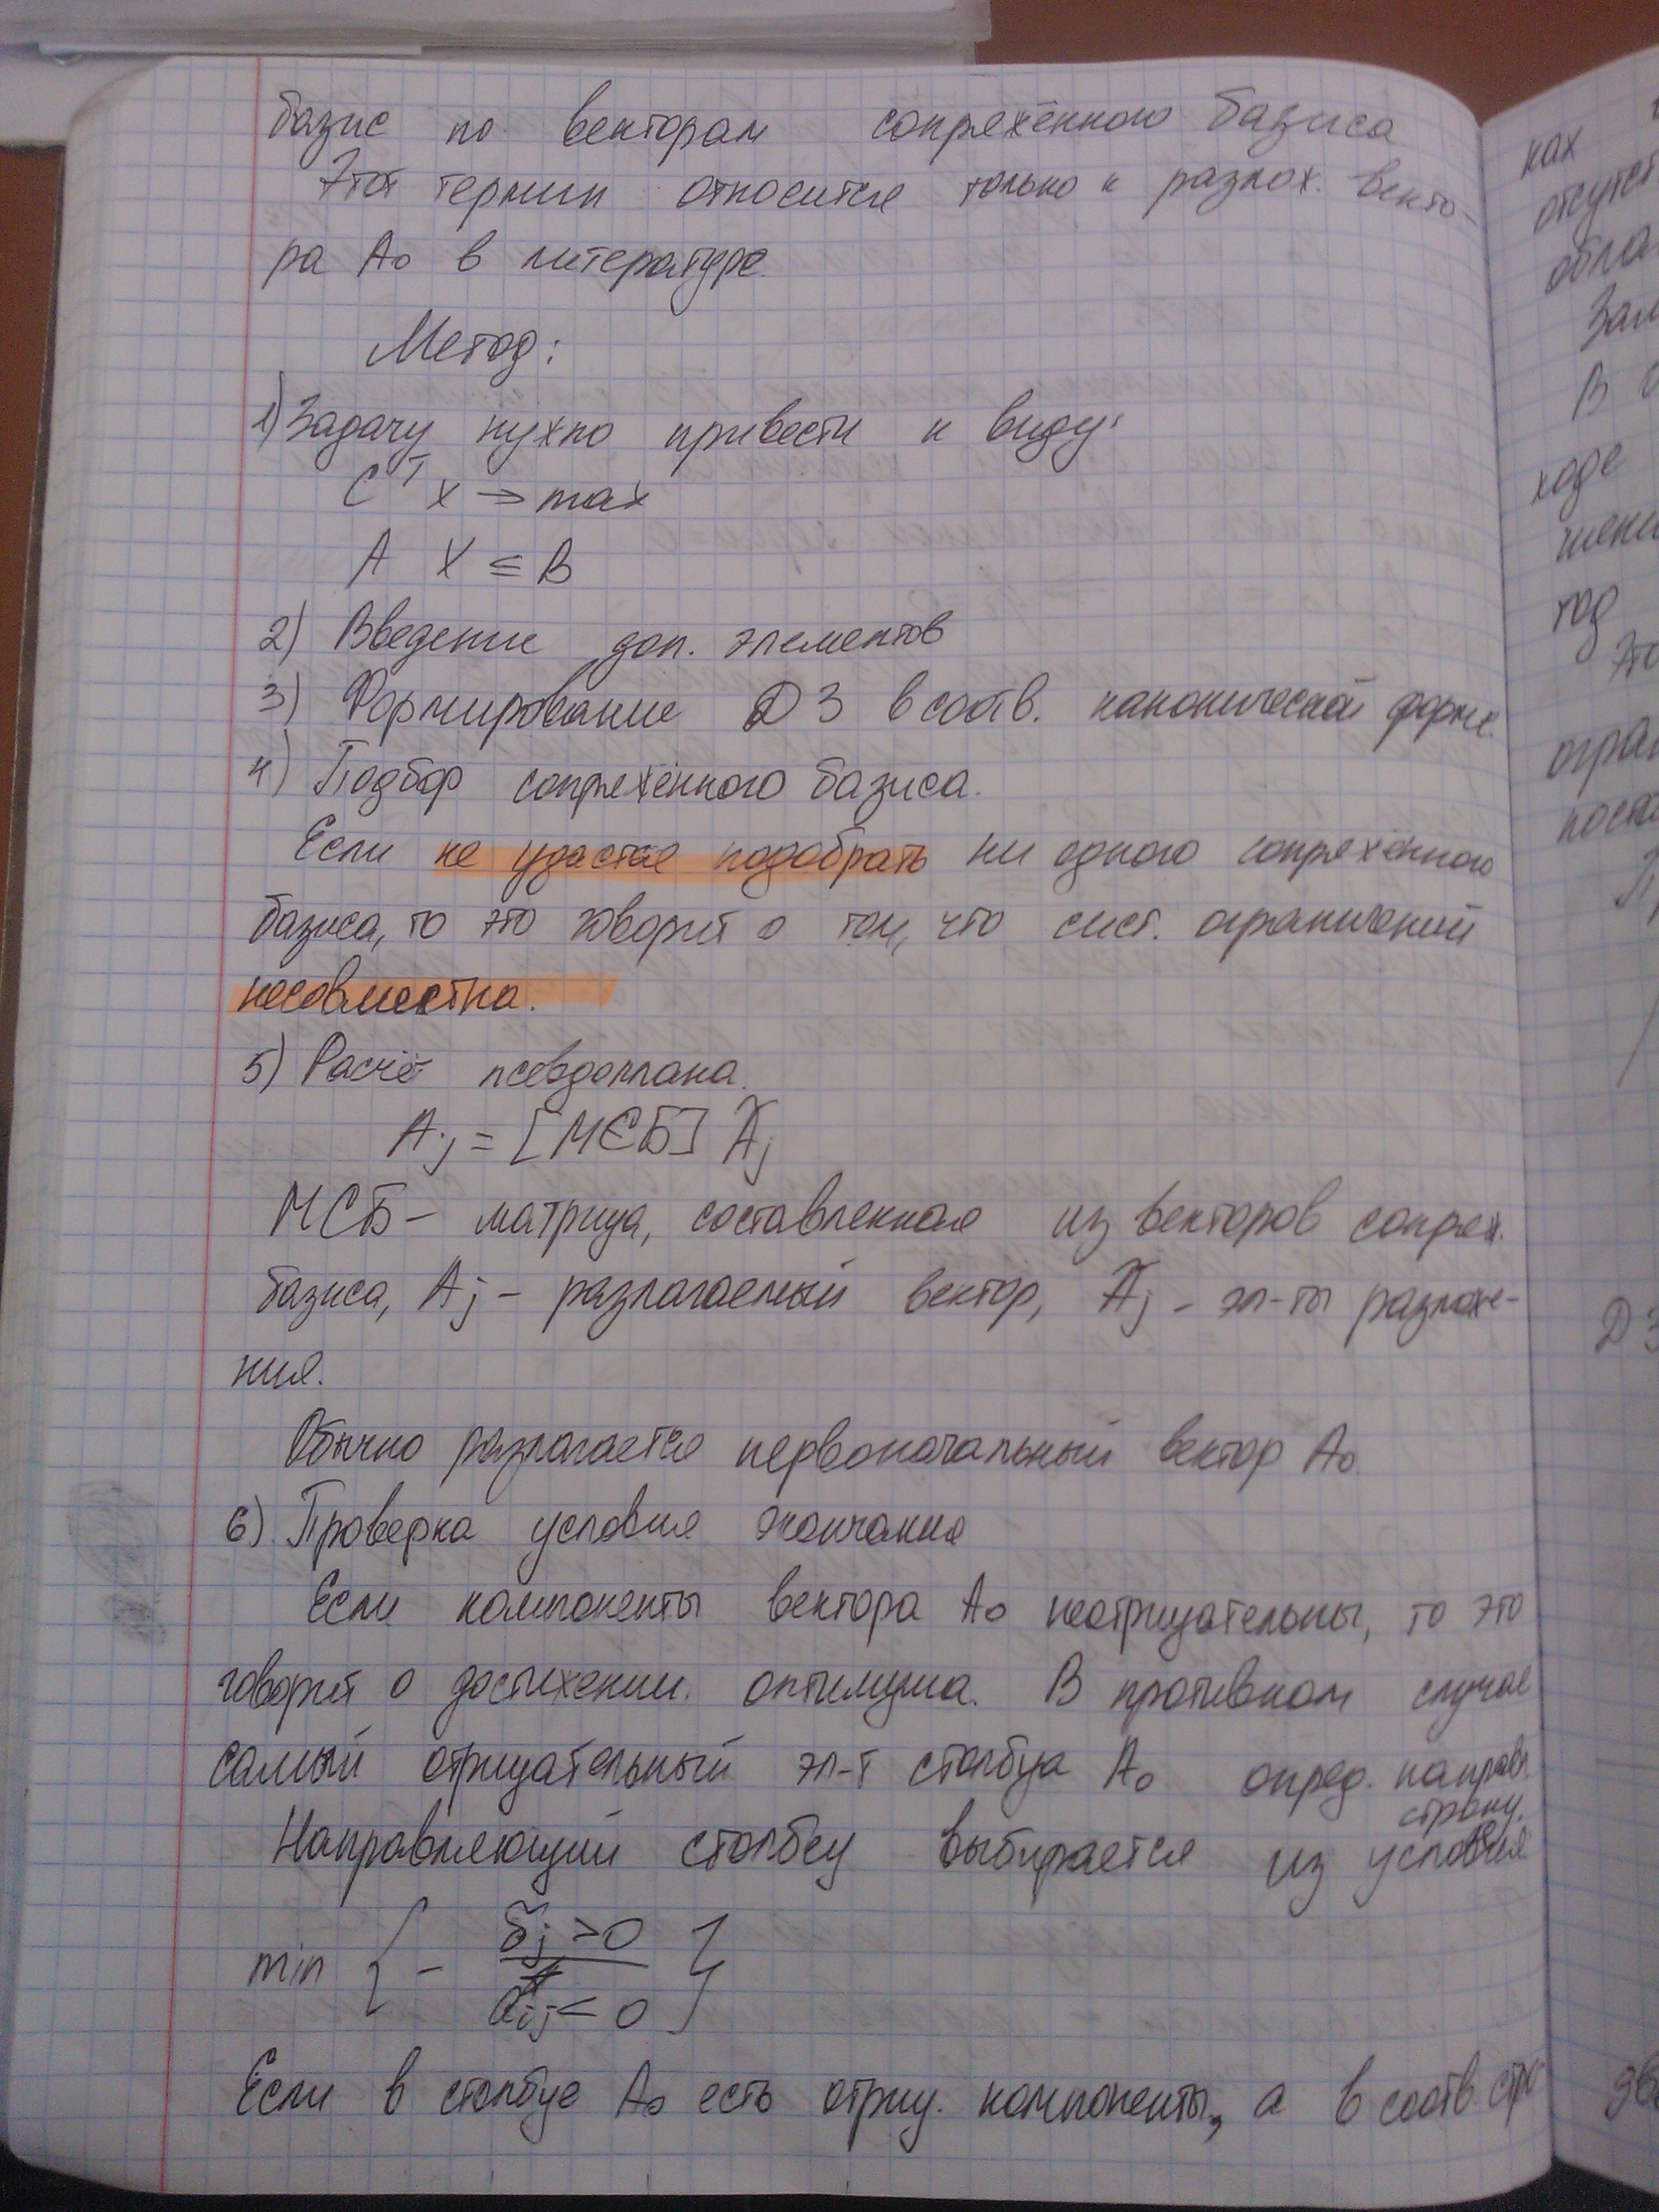 базис по векторам сопряжённого базиса
Этот термин относится только к разлож. векто-
ра A₀ в литературе.
Метод:
1) Задачу нужно привести к виду:
Cᵀ x → max
A X ≤ B
2) Введение доп. элементов
3) Формирование ДЗ в соотв. канонической форме.
4) Подбор сопряжённого базиса.
Если не удастся подобрать ни одного сопряжённого
базиса, то это говорит о том, что сист. ограничений
несовместна.
5) Расчёт псевдоплана.
Aj = [МСБ] Ãj
МСБ – матрица, составленная из векторов сопряж.
базиса, Aj – разлагаемый вектор, Ãj – эл-ты разложе-
ния.
Обычно разлагается первоначальный вектор A₀
6) Проверка условия окончания
Если компоненты вектора A₀ неотрицательны, то это
говорит о достижении оптимума. В противном случае
самый отрицательный эл-т столбца A₀ опред. направл.
строку.
Направляющий столбец выбирается из условия
min { - δ̃j ≥ 0
ãij < 0 }
Если в столбце A₀ есть отриц. компоненты, а в соотв. стро-
ках
отсутст
обла
Зам
В
ходе
шени
тод
Это
огран
поста
ДЗ